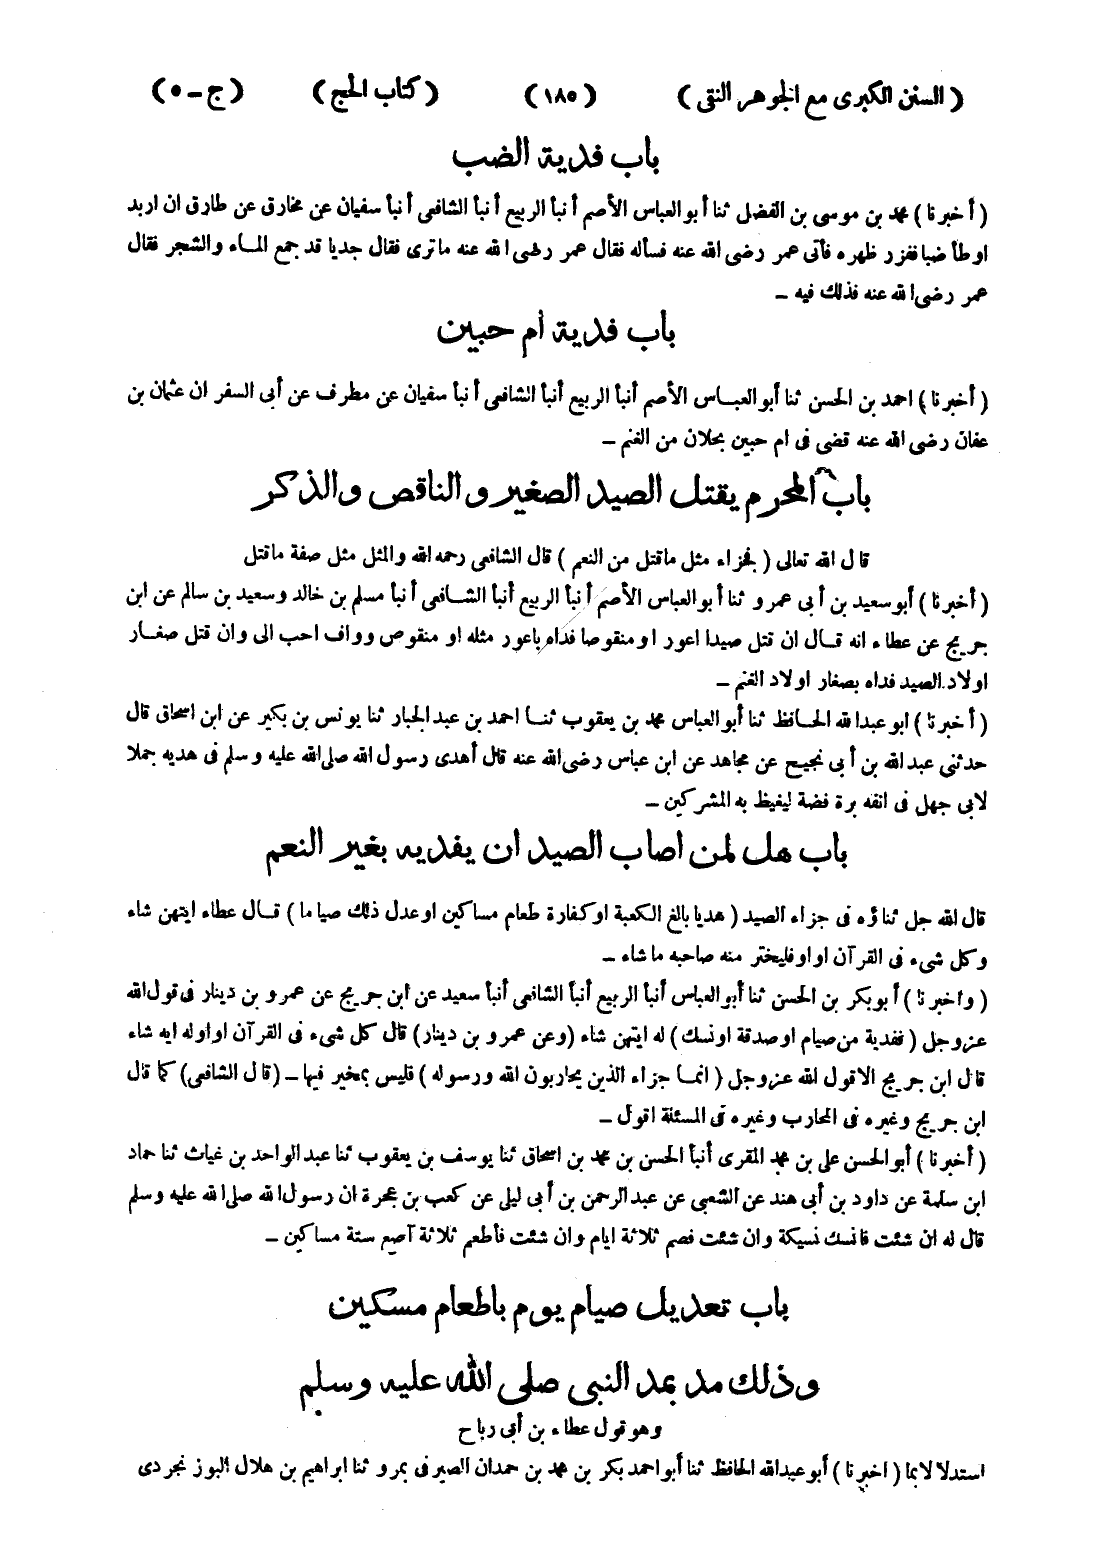 ( السنن الكبرى مع الجوهر النقى ) ( ١٨٥ ) ( كتاب الحج ) ( ج – ٥ )
باب فدية الضب
( أخبرنا ) محمد بن موسى بن الفضل ثنا أبو العباس الأصم أنبأ الربيع أنبأ الشافعى أنبأ سفيان عن مخارق عن طارق ان اربد
اوطأ ضبا ففزر ظهره فأتى عمر رضى الله عنه فسأله فقال عمر رضى الله عنه ماترى فقال جديا قد جمع المـاء والشجر فقال
عمر رضى الله عنه فذلك فيه –
باب فدية أم حبين
( أخبرنا ) احمد بن الحسن ثنا أبو العبـاس الأصم أنبأ الربيع أنبأ الشافعى أنبأ سفيان عن مطرف عن أبى السفر ان عثمان بن
عفان رضى الله عنه قضى فى ام حبين بحلان من الغنم –
باب المحرم يقتل الصيد الصغير و الناقص والذكر
قال الله تعالى ( فجزاء مثل ماقتل من النعم ) قال الشافعى رحمه الله والمثل مثل صفة ماقتل
( أخبرنا ) أبو سعيد بن أبى عمرو ثنا أبو العباس الأصم أنبأ الربيع أنبأ الشـافعى أنبأ مسلم بن خالد وسعيد بن سالم عن ابن
جريج عن عطاء انه قـال ان قتل صيدا اعور او منقوصا فداه باعور مثله او منقوص وواف احب الى وان قتل صغـار
اولاد الصيد فداه بصغار اولاد الغنم –
( أخبرنا ) ابو عبد الله الحـافظ ثنا أبو العباس محمد بن يعقوب ثنـا احمد بن عبد الجبار ثنا يونس بن بكير عن ابن اسحاق قال
حدثنى عبد الله بن أبى نجيح عن مجاهد عن ابن عباس رضى الله عنه قال أهدى رسول الله صلى الله عليه وسلم فى هديه جملا
لابى جهل فى انفه برة فضة ليغيظ به المشركين –
باب هل لمن اصاب الصيد ان يفديه بغير النعم
قال الله جل ثناؤه فى جزاء الصيد ( هديا بالغ الكعبة او كفارة طعام مساكين او عدل ذلك صياما ) قـال عطاء ايتهن شاء
وكل شىء فى القرآن او او فليختر منه صاحبه ما شاء –
( واخبرنا ) أبوبكر بن الحسن ثنا أبو العباس أنبأ الربيع أنبأ الشافعى أنبأ سعيد عن ابن جريج عن عمرو بن دينار فى قول الله
عز وجل ( ففدية من صيام او صدقة او نسك ) له ايتهن شاء (وعن عمرو بن دينار) قال كل شىء فى القرآن او او له ايه شاء
قال ابن جريج الا قول الله عز وجل ( انمـا جزاء الذين يحاربون الله ورسوله ) فليس بمخير فيها – (قال الشافعى) كما قال
ابن جريج وغيره فى المحارب وغيره فى المسئلة اقول –
( أخبرنا ) أبو الحسن على بن محمد المقرى أنبأ الحسن بن محمد بن اسحاق ثنا يوسف بن يعقوب ثنا عبد الواحد بن غياث ثنا حماد
ابن سلمة عن داود بن أبى هند عن الشعبى عن عبد الرحمن بن أبى ليلى عن كعب بن عجرة ان رسول الله صلى الله عليه وسلم
قال له ان شئت فانسك نسيكة وان شئت فصم ثلاثة ايام وان شئت فأطعم ثلاثة آصع ستة مساكين –
باب تعديل صيام يوم باطعام مسكين
وذلك مد بمد النبى صلى الله عليه وسلم
وهو قول عطاء بن أبى رباح
استدلالا بما ( اخبرنا ) أبو عبد الله الحافظ ثنا أبو احمد بكر بن محمد بن حمدان الصيرفى بمرو ثنا ابراهيم بن هلال البوزنجردى